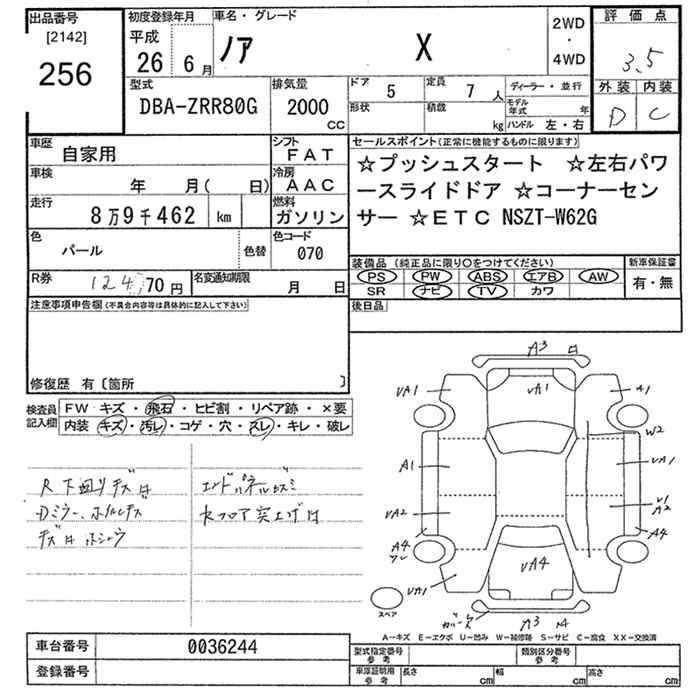 出品番号
[2142]
256
初度登録年月
平成
26 6月
車名・グレード
ノア X
2WD
・
4WD
評価点
3.5
外装 内装
D C
型式
DBA-ZRR80G
排気量
2000
CC
ドア 5
定員 7 人
ディーラー・並行
形状
積載 kg
モデル年式 年
ハンドル 左・右
車歴 自家用
シフト FAT
車検 年 月( 日)
冷房 AAC
走行 8万9千462 km
燃料 ガソリン
色 パール
色替
色コード 070
R券 12470円
名変通知期限 月 日
セールスポイント(正常に機能するものに限ります)
☆プッシュスタート ☆左右パワ
ースライドドア ☆コーナーセン
サー ☆ETC NSZT-W62G
装備品(純正品に限り○をつけてください)
新車保証書
PS PW ABS エアB AW
SR ナビ TV カワ
有・無
後日品
注意事項申告欄(不具合内容等は具体的に記入して下さい)
修復歴 有〔箇所 〕
検査員
記入欄
FW キズ・飛石・ヒビ割・リペア跡・×要
内装 キズ・汚レ・コゲ・穴・スレ・キレ・破レ
R下廻りキズ
Dミラー、ホイルキズ
エンドパネル
フロア突上げ
A3
UA1
UA1
A1
W2
A1
UA1
UA2
U1
A2
A4
A4
UA4
UA1
A3
スペア
A-キズ E-エクボ U-凹み W-補修跡 S-サビ C-腐食 XX-交換済
車台番号 0036244
登録番号
型式指定番号
参考
類別区分番号
参考
車庫証明用
参考
長さ cm
幅 cm
高さ cm